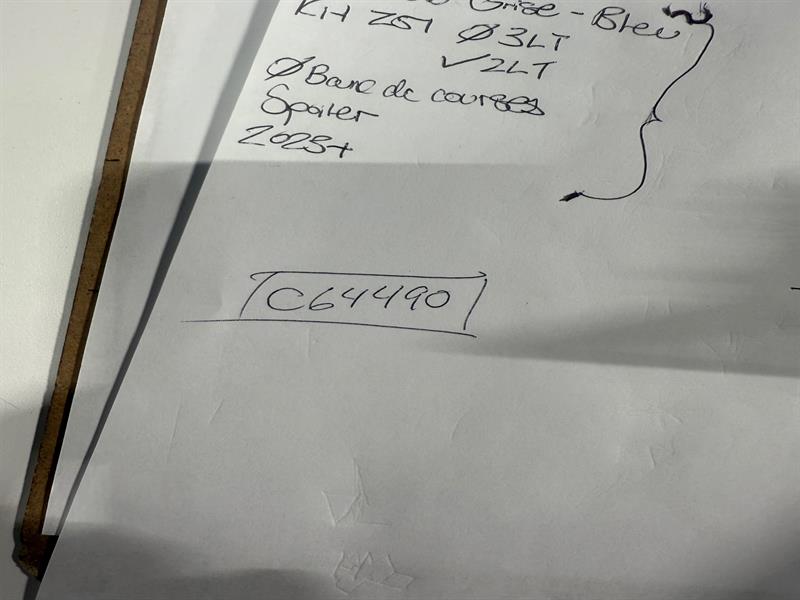 Grise - Bleu
Kit Z51 Ø 3LT
✓ 2LT
Ø Bane de courses
Spoiler
2025+
C64490